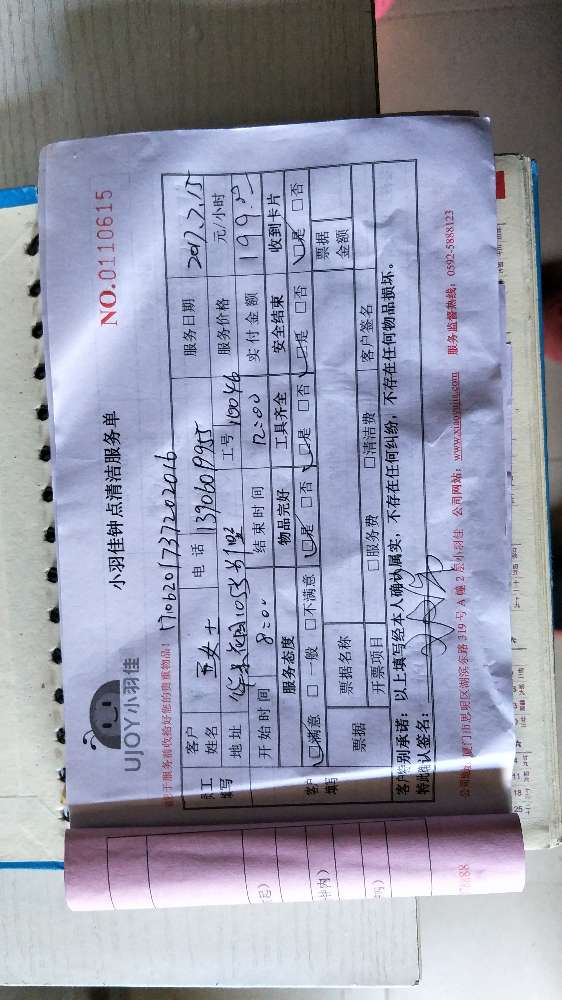 NO.0110615
小羽佳钟点清洁服务单
UJOY小羽佳
请于服务前收拾好您的贵重物品!
员工填写 客户姓名 王女士 电话 服务日期 2017.7.15
地址 工号 10046 服务价格 元/小时
开始时间 8:00 结束时间 12:00 实付金额 199.00
客户填写 服务态度 物品完好 工具齐全 安全结束 收到卡片
□满意 □一般 □不满意 □是 □否 □是 □否 □是 □否 □是 □否
票据 票据名称 票据金额
开票项目 □服务费 □清洁费 客户签名
客户特别承诺:以上填写经本人确认属实,不存在任何纠纷,不存在任何物品损坏。
特此确认签名:
公司地址:厦门市思明区湖滨东路319号A幢2层小羽佳 公司网站:www.xiaoyujia.com 服务监督热线:0592-5888123